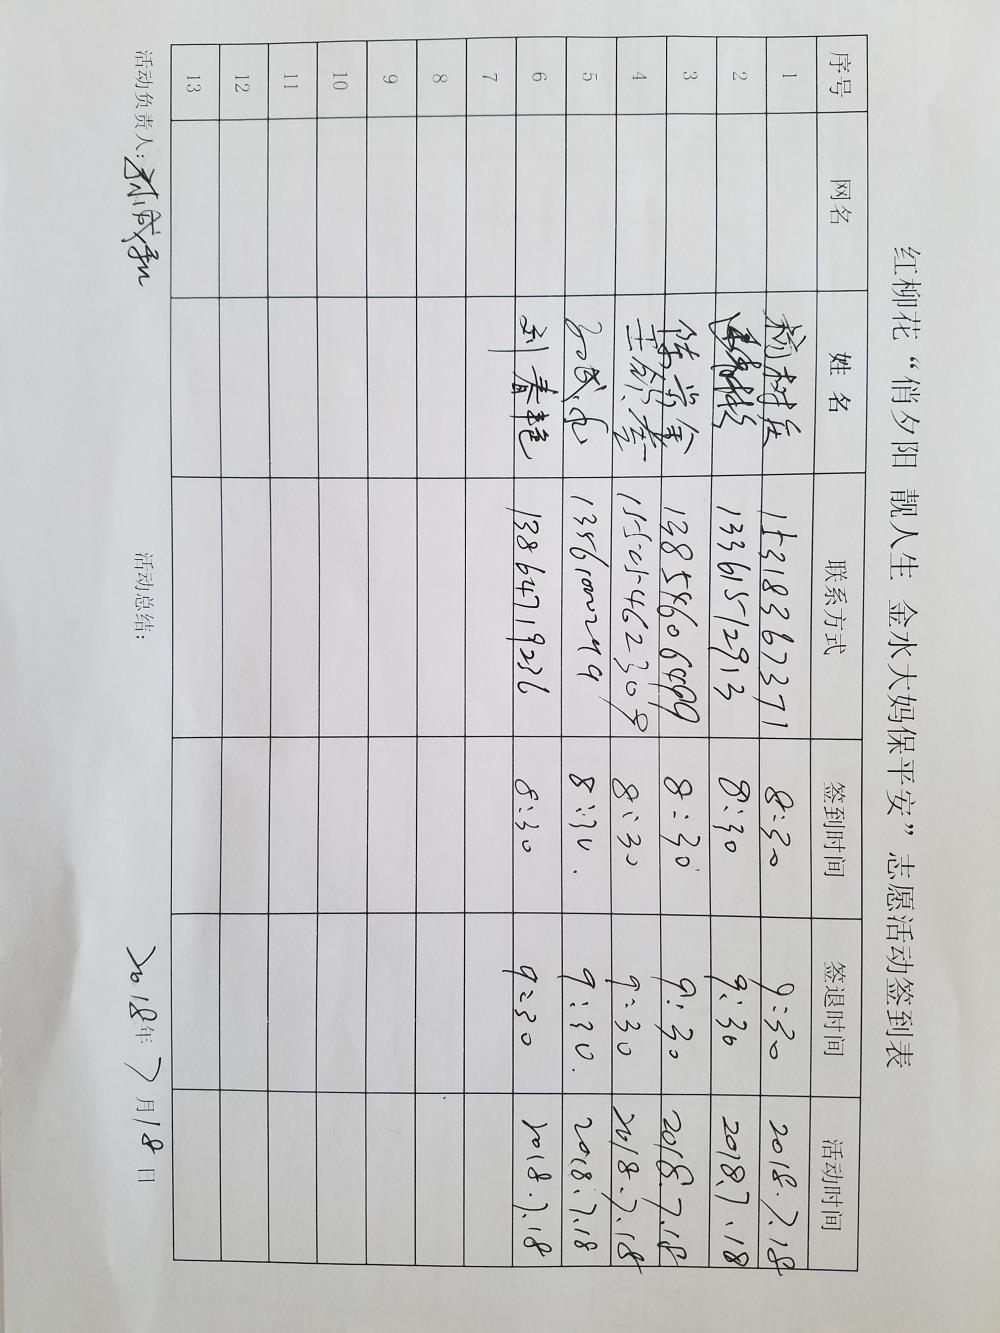 红柳花“俏夕阳 靓人生 金水大妈保平安”志愿活动签到表
序号 网名 姓名 联系方式 签到时间 签退时间 活动时间
1 杨树兵 15318367371 8:30 9:30 2018.7.18
2 13361512913 8:30 9:30 2018.7.18
3 陈尝金 13854606499 8:30 9:30 2018.7.18
4 8:30 9:30 2018.7.18
5 8:30. 9:30. 2018.7.18
6 刘春艳 13864719236 8:30 9:30 2018.7.18
7
8
9
10
11
12
13
活动负责人: 活动总结: 2018年7月18日